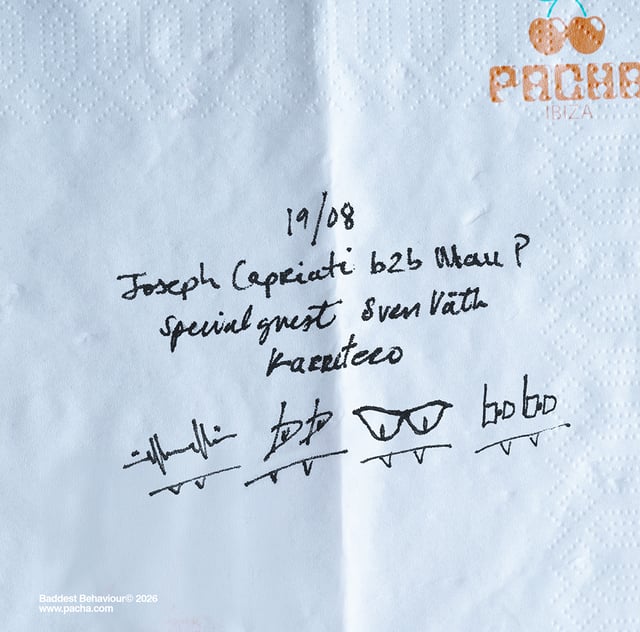 PACHA
IBIZA
19/08
Joseph Capriati b2b Mau P
Special guest Sven Väth
Karretero
Baddest Behaviour© 2026
www.pacha.com